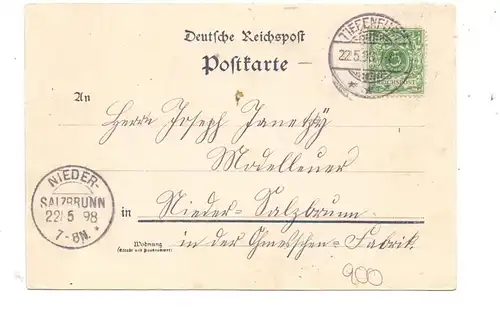 Deutsche Reichspost
Postkarte
TIEFENFU
22.5.98
REICHSPOST
An
Herrn Joseph Janetzky
Modelleur
NIEDER-
SALZBRUNN
22/5 98
7-8N. *
in Nieder-Salzbrunn
Wohnung
(Straße und Hausnummer)
in der Ohmeschen-Fabrik.
900